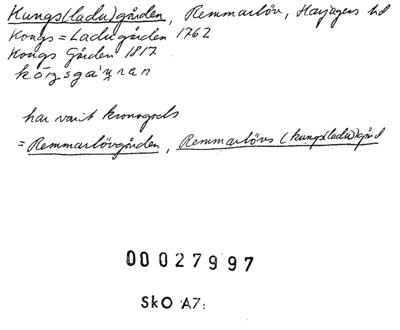 Kungs(ladu)gården, Remmarlöv, Harjagers hd
Kongs=Ladugården 1762
Kongs Gården 1817
har varit kronogods
= Remmarlövgården, Remmarlövs (kungsladu)gård
00027997
SkO A7: